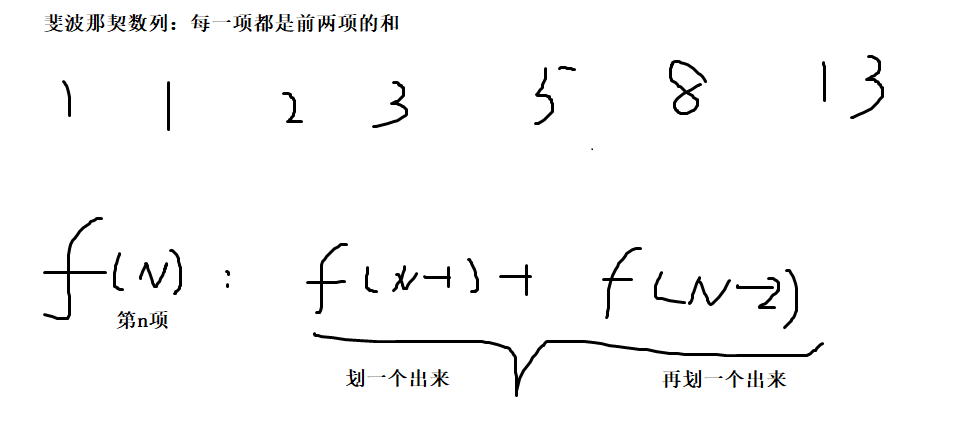 斐波那契数列：每一项都是前两项的和
1 1 2 3 5 8 13
f(N)： f(N-1)+ f(N-2)
第n项
划一个出来 再划一个出来